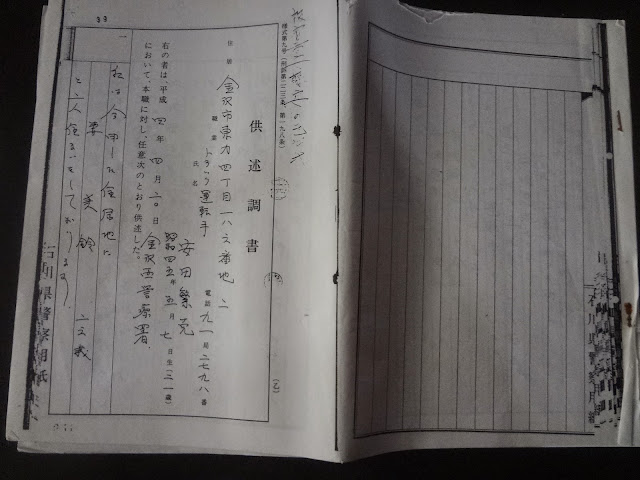 様式第九号(刑訴第二二三条、第一九八条)
供述調書
(乙)
住居 金沢市東力四丁目一八 番地二
職業 トラック運転手 電話 九一局二七九八番
氏名 安田繁克
昭和四五年五月七日生(二一歳)
右の者は、平成四年四月 〇日 金沢西警察署
において、本職に対し、任意次のとおり供述した。
一
私は今申した住居地に
李 美鈴
と二人住まいをしております。
石川県警察用紙
33